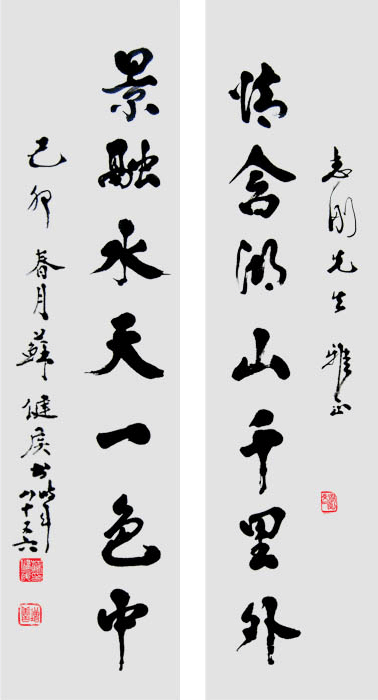 志刚先生雅正
情含湖山千里外
景融水天一色中
己卯春月蘇健侯书
时年八十又六